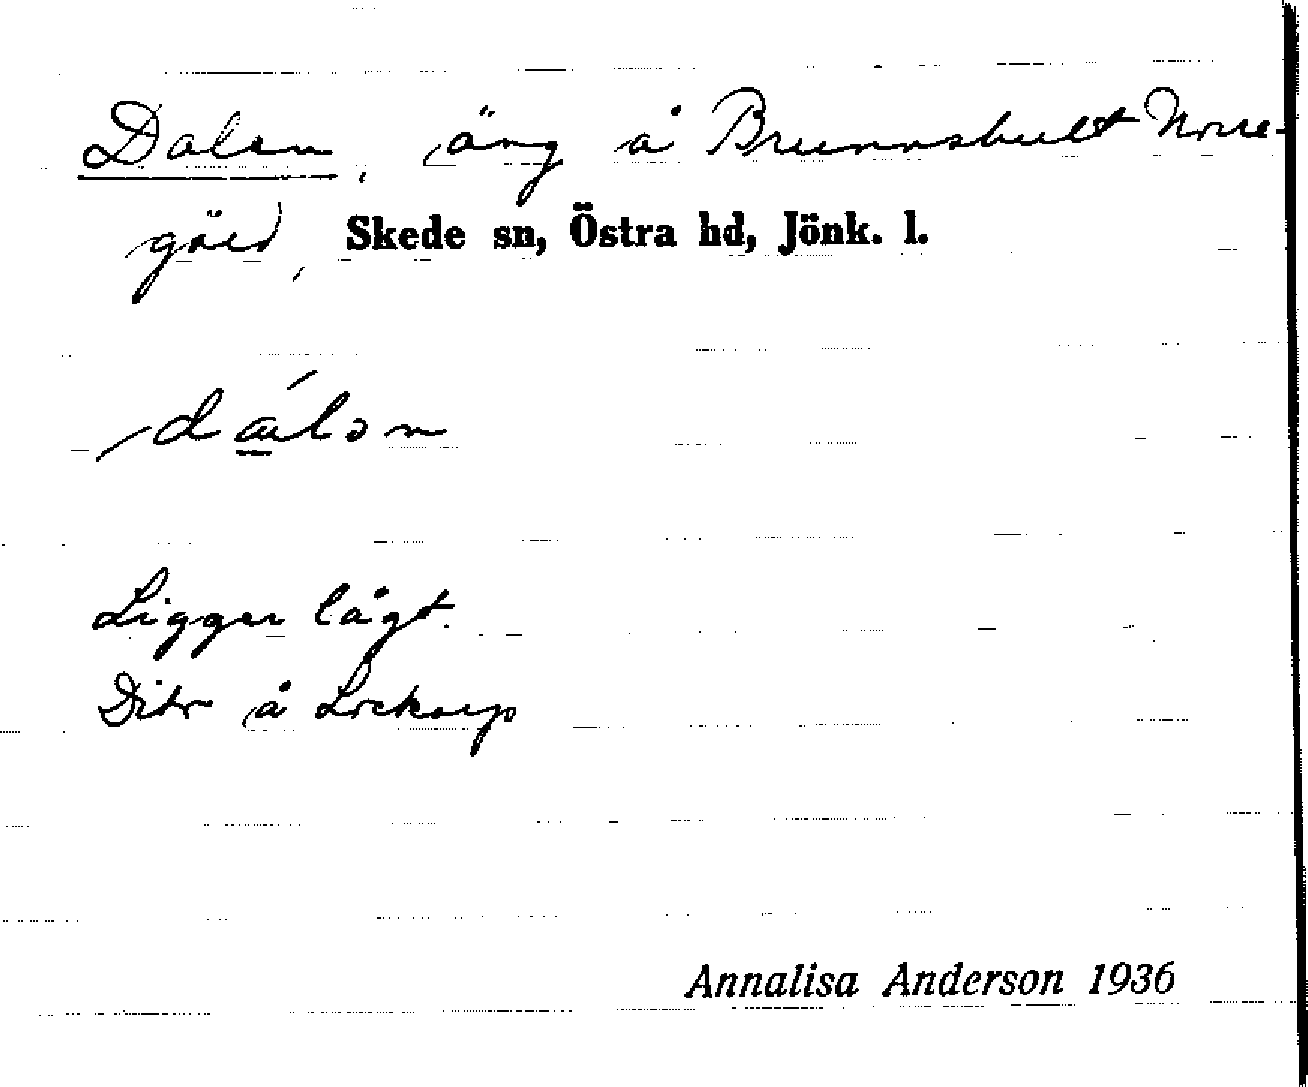 Dalen, äng å Brunnshult Norre-
gård, Skede sn, Östra hd, Jönk. l.
Ligger lågt.
Dito å Lockarp
Annalisa Anderson 1936